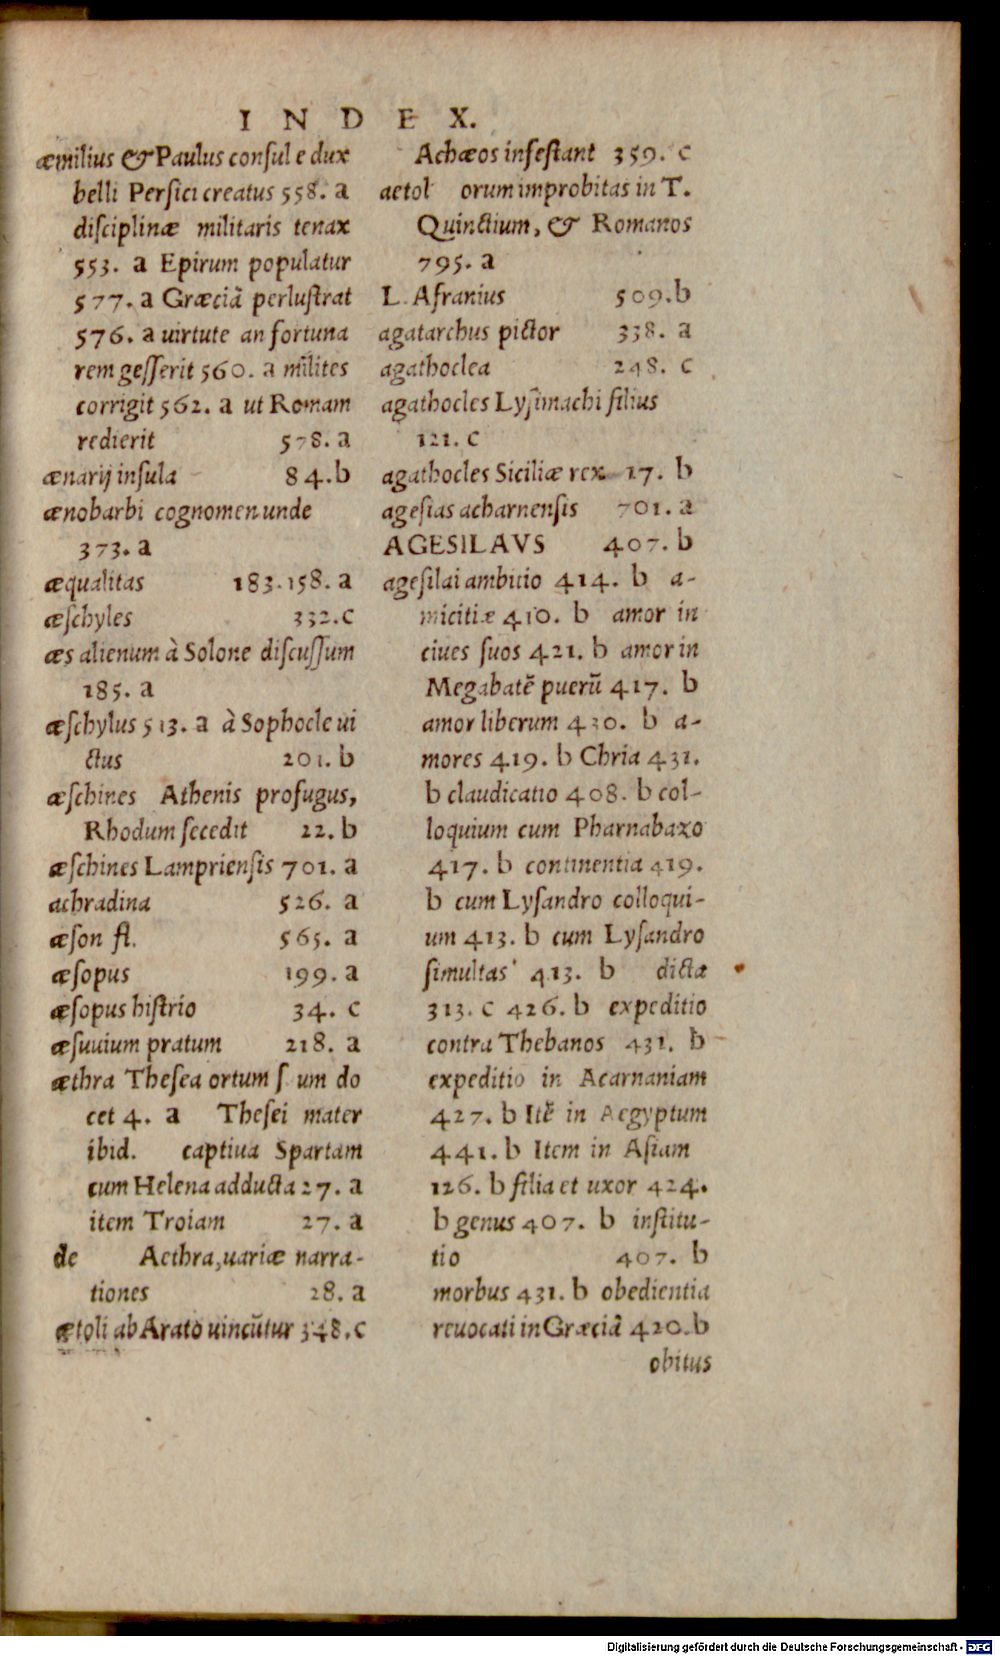 INDEX.
æmilius & Paulus consul e dux
belli Persici creatus 558. a
disciplinæ militaris tenax
553. a Epirum populatur
577. a Græciã perlustrat
576. a uirtute an fortuna
rem gesserit 560. a milites
corrigit 562. a ut Romam
redierit 578. a
ænarij insula 84.b
ænobarbi cognomen unde
373. a
æqualitas 183.158. a
æschyles 332.c
æs alienum à Solone discussum
185. a
æschylus 513. a à Sophocle ui
ctus 201. b
æschines Athenis profugus,
Rhodum secedit 22. b
æschines Lampriensis 701. a
achradina 526. a
æson fl. 565. a
æsopus 199. a
æsopus histrio 34. c
æsuuium pratum 218. a
æthra Thesea ortum s um do
cet 4. a Thesei mater
ibid. captiua Spartam
cum Helena adducta 27. a
item Troiam 27. a
de Aethra, uariæ narra-
tiones 28. a
ætoli ab Arato uincũtur 348.c
Achæos infestant 359. c
aetol orum improbitas in T.
Quinctium, & Romanos
795. a
L. Afranius 509.b
agatarchus pictor 338. a
agathoclea 248. c
agathocles Lysimachi filius
121. c
agathocles Siciliæ rex 17. b
agesias acharnensis 701. a
AGESILAVS 407. b
agesilai ambitio 414. b a-
micitiæ 410. b amor in
ciues suos 421. b amor in
Megabatẽ puerũ 417. b
amor liberum 430. b a-
mores 419. b Chria 431.
b claudicatio 408. b col-
loquium cum Pharnabazo
417. b continentia 419.
b cum Lysandro colloqui-
um 413. b cum Lysandro
simultas 413. b dicta
313. c 426. b expeditio
contra Thebanos 431. b
expeditio in Acarnaniam
427. b Itẽ in Aegyptum
441. b Item in Asiam
126. b filia et uxor 424.
b genus 407. b institu-
tio 407. b
morbus 431. b obedientia
reuocati in Græciã 420.b
obitus
Digitalisierung gefördert durch die Deutsche Forschungsgemeinschaft - DFG